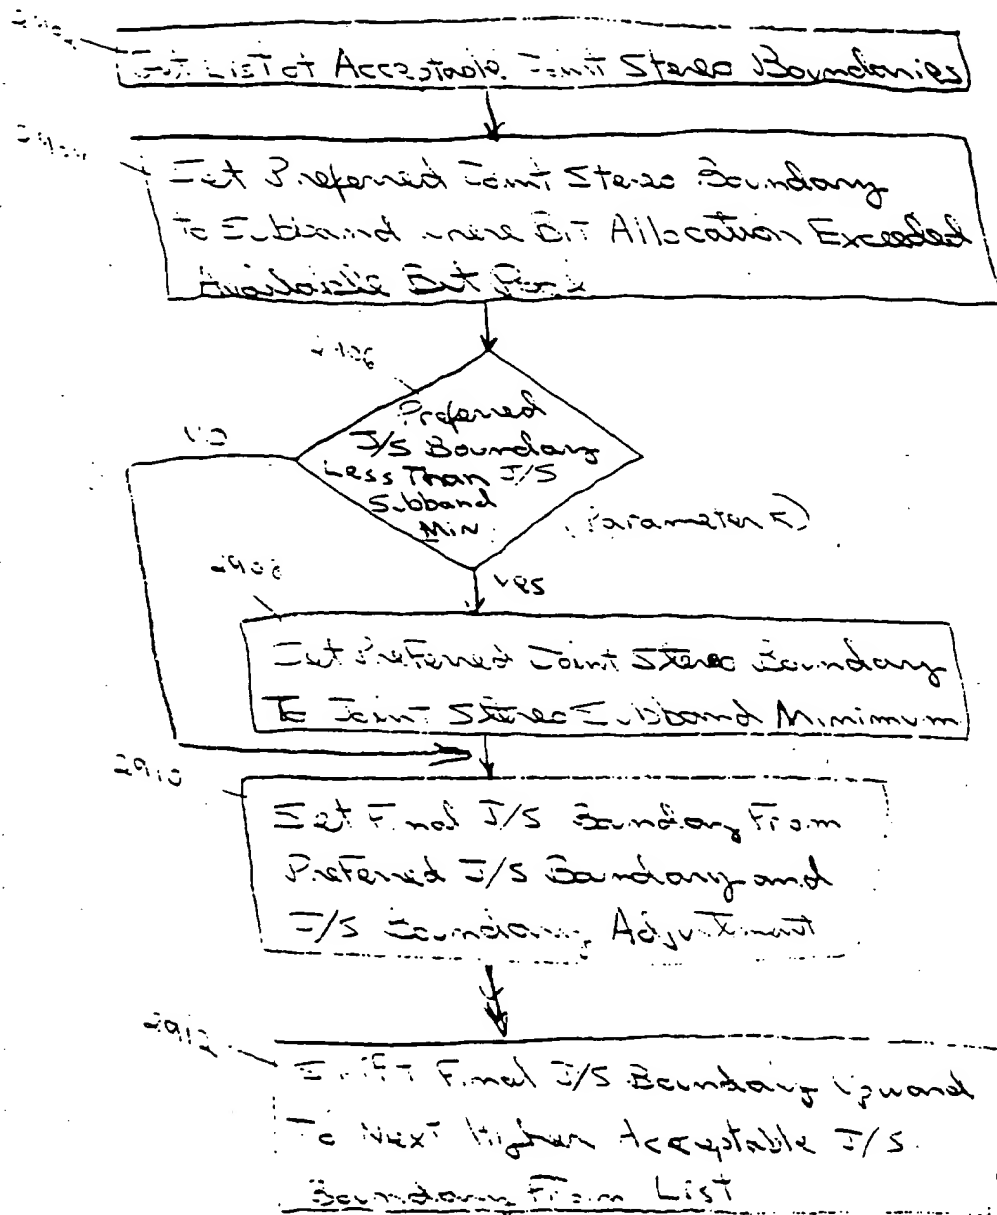 Get List of Acceptable Joint Stereo Boundaries
Set Preferred Joint Stereo Boundary
To Subband where Bit Allocation Exceeded
Available Bit Pool
Preferred
J/S Boundary
Less Than J/S
Subband
Min
NO
(Parameter )
2908
yes
Set Preferred Joint Stereo Boundary
To Joint Stereo Subband Minimum
2910
Set Final J/S Boundary From
Preferred J/S Boundary and
J/S Boundary Adjustment
2912
Shift Final J/S Boundary Upward
To Next Higher Acceptable J/S
Boundary From List